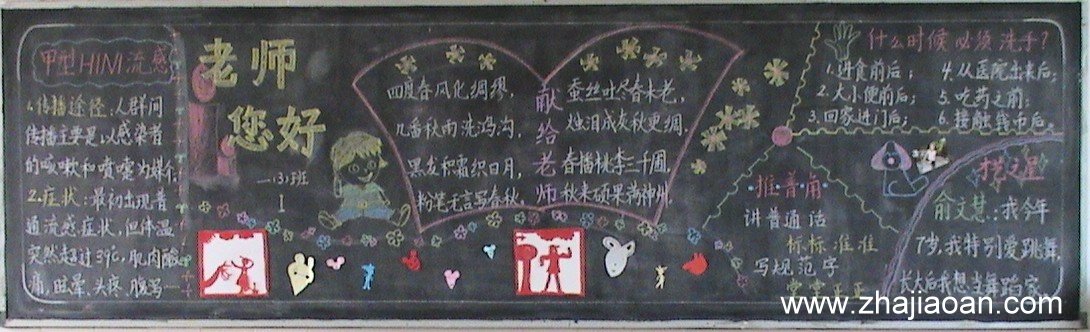 甲型H1N1流感
1.传播途径:人群间
传播主要是以感染者
的咳嗽和喷嚏为媒介
2.症状:最初出现普
通流感症状,但体温
突然超过39℃,肌肉酸
痛,眩晕、头疼、腹泻
老师
您好
一(3)班
献给老师
四度春风化绸缪,
几番秋雨洗鸿沟,
黑发积霜织日月,
粉笔无言写春秋,
蚕丝吐尽春未老,
烛泪成灰秋更稠,
春播桃李三千圃,
秋来硕果满神州,
什么时候必须洗手?
1.进食前后;
2.大小便前后;
3.回家进门后;
4.从医院出来后;
5.吃药之前;
6.接触钱币后。
推普角
讲普通话
标标准准
写规范字
堂堂正正
之星
俞文慧:我今年
7岁,我特别爱跳舞,
长大后我想当舞蹈家
www.zhajiaoan.com